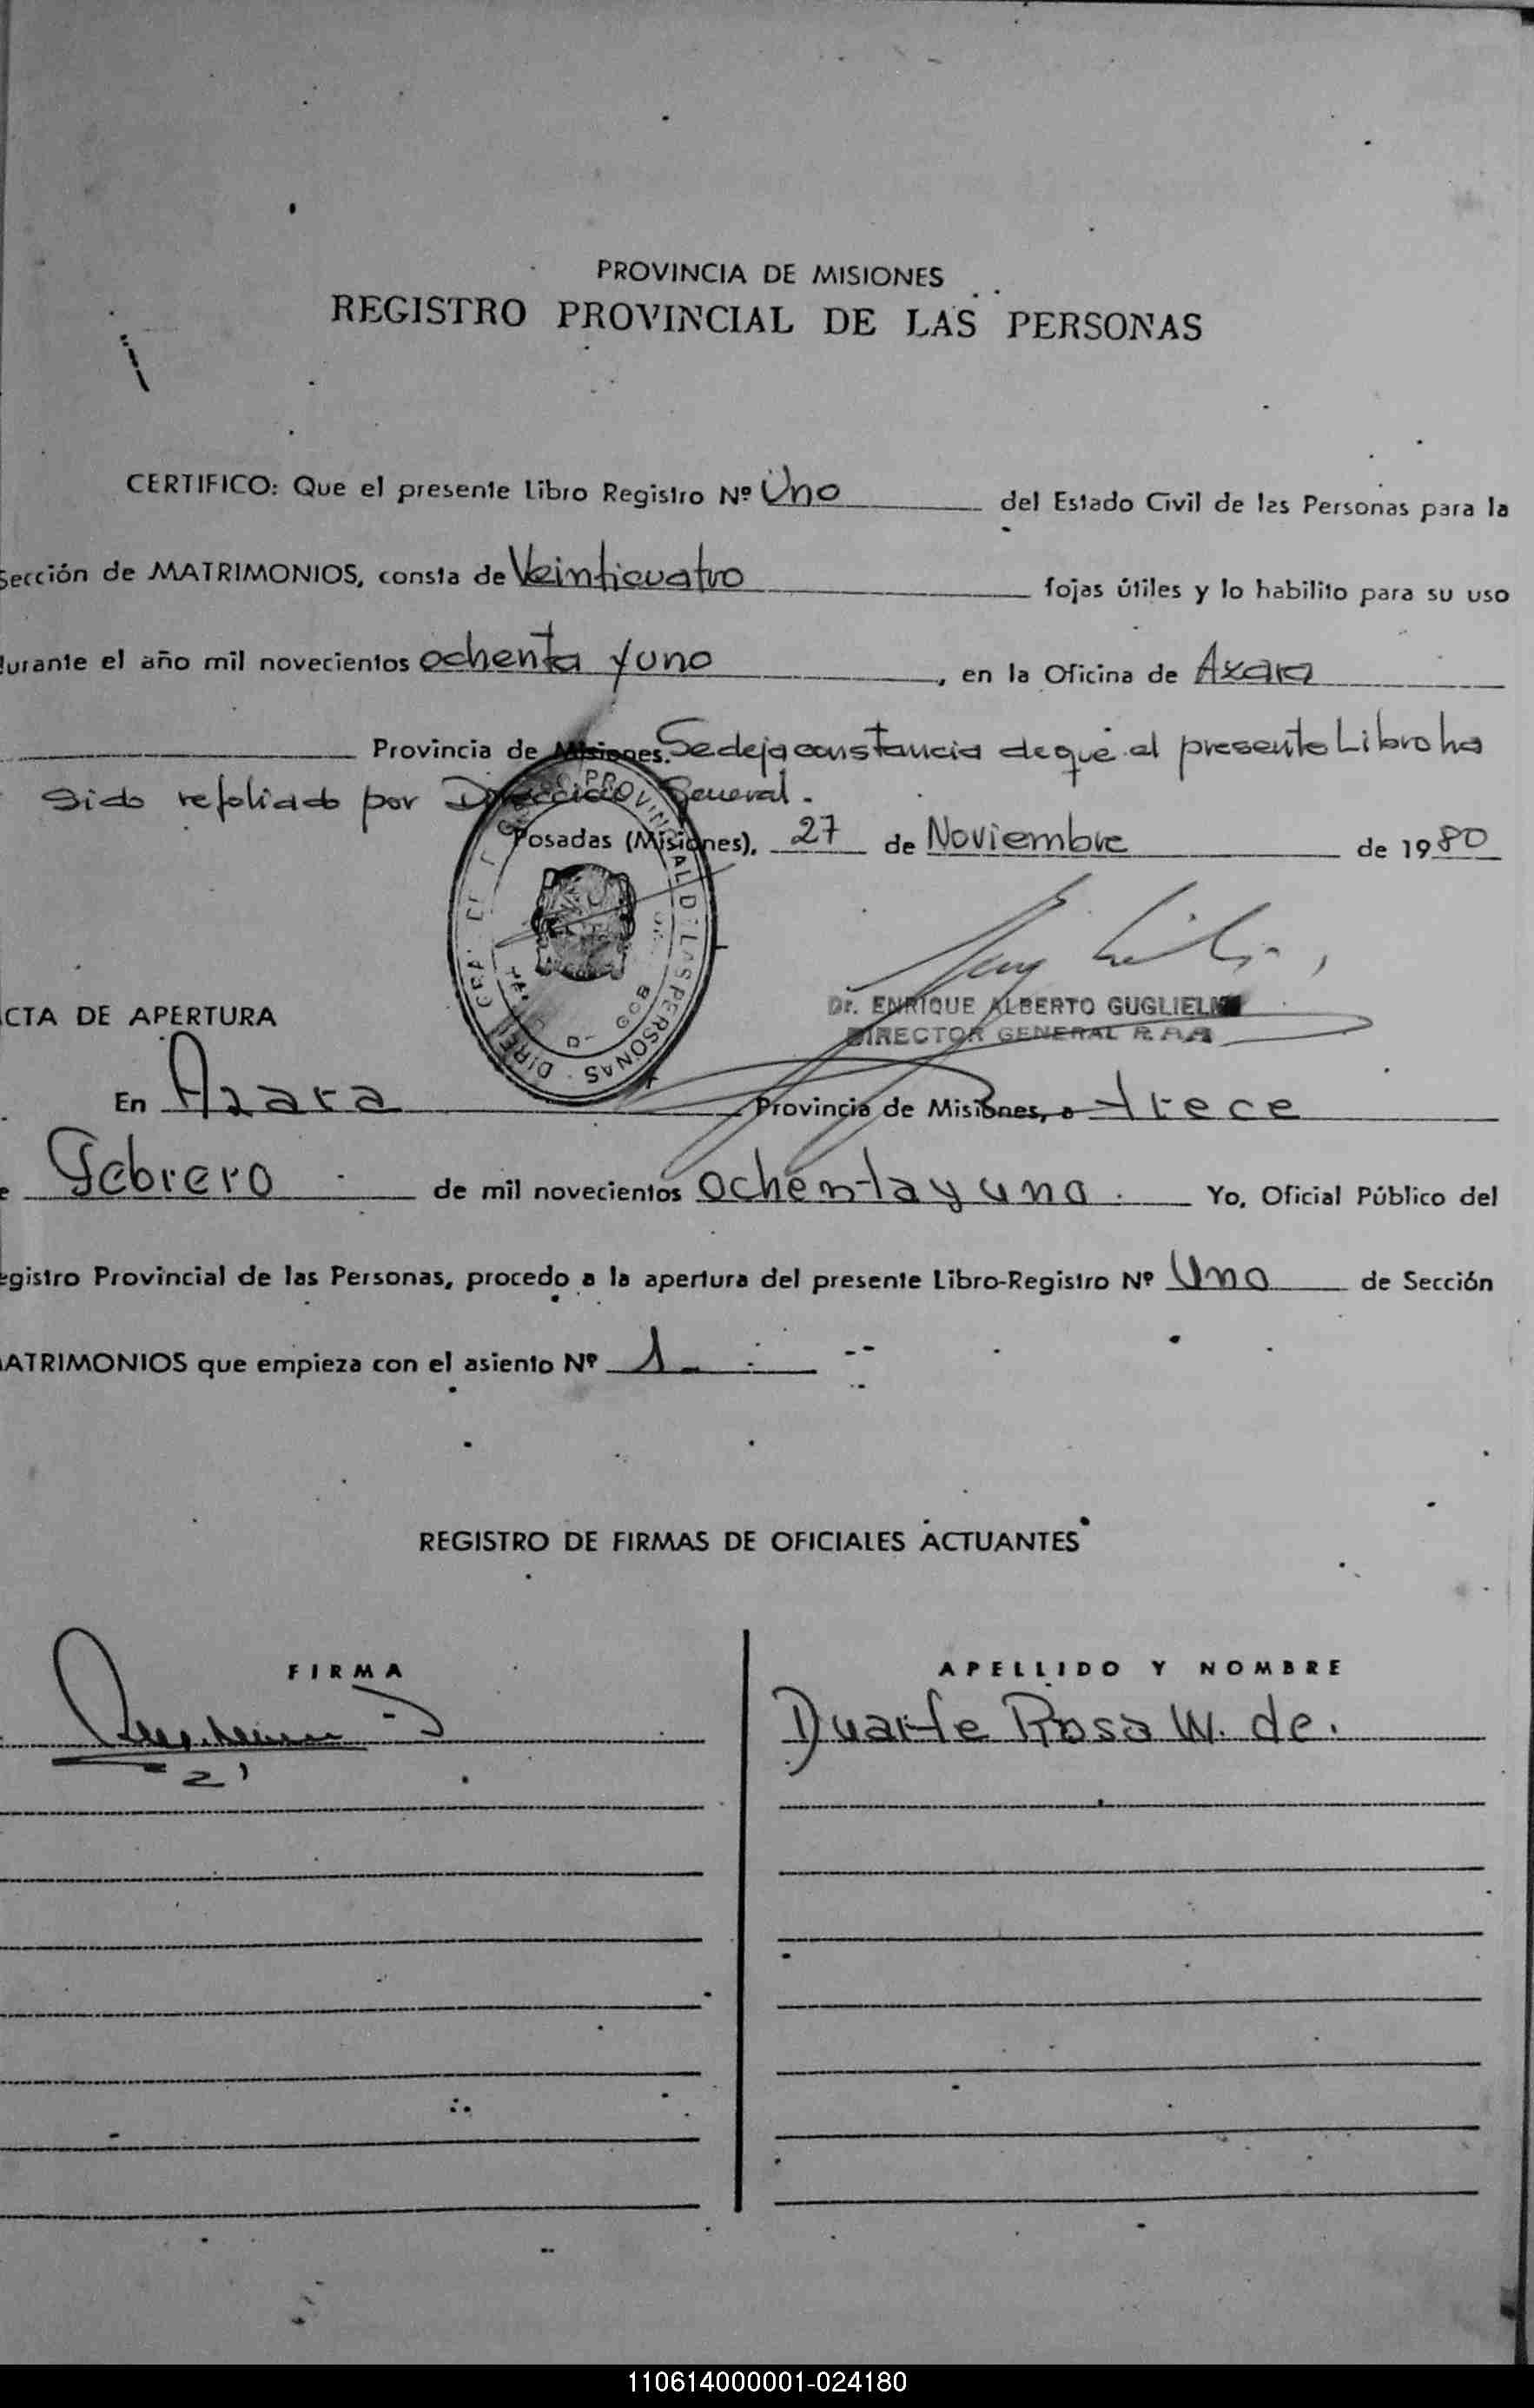 PROVINCIA DE MISIONES
REGISTRO PROVINCIAL DE LAS PERSONAS
CERTIFICO: Que el presente Libro Registro Nº Uno del Estado Civil de las Personas para la
Sección de MATRIMONIOS, consta de Veinticuatro fojas útiles y lo habilito para su uso
durante el año mil novecientos ochenta y uno, en la Oficina de Azara
Provincia de Misiones. Se deja constancia de que el presente Libro ha
sido refoliado por Dirección General.
Posadas (Misiones), 27 de Noviembre de 1980
Dr. ENRIQUE ALBERTO GUGLIELMI
DIRECTOR GENERAL R.P.P.
CTA DE APERTURA
En Azara Provincia de Misiones, a trece
e Febrero de mil novecientos ochenta y uno. Yo, Oficial Público del
egistro Provincial de las Personas, procedo a la apertura del presente Libro-Registro Nº Uno de Sección
ATRIMONIOS que empieza con el asiento Nº 1
REGISTRO DE FIRMAS DE OFICIALES ACTUANTES
FIRMA APELLIDO Y NOMBRE
Duarte Rosa W. de.
110614000001-024180